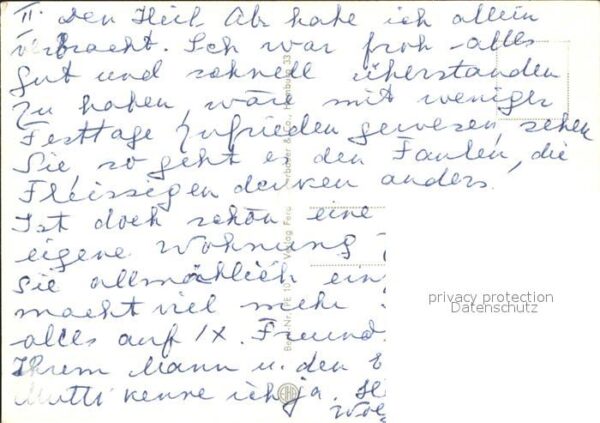 II. den Heil. Ab. habe ich allein
verbracht. Ich war froh - alles
gut und schnell überstanden
zu haben, wäre mit weniger
Festtage zufrieden gewesen, sehen
Sie, so geht es den Faulen, die
Fleissigen denken anders.
Ist doch schön eine
eigene Wohnung
Sie allmählich ein
macht viel mehr
alles auf 1x. Freund
Ihrem Mann u. den
Mutti kenne ich ja.
privacy protection
Datenschutz